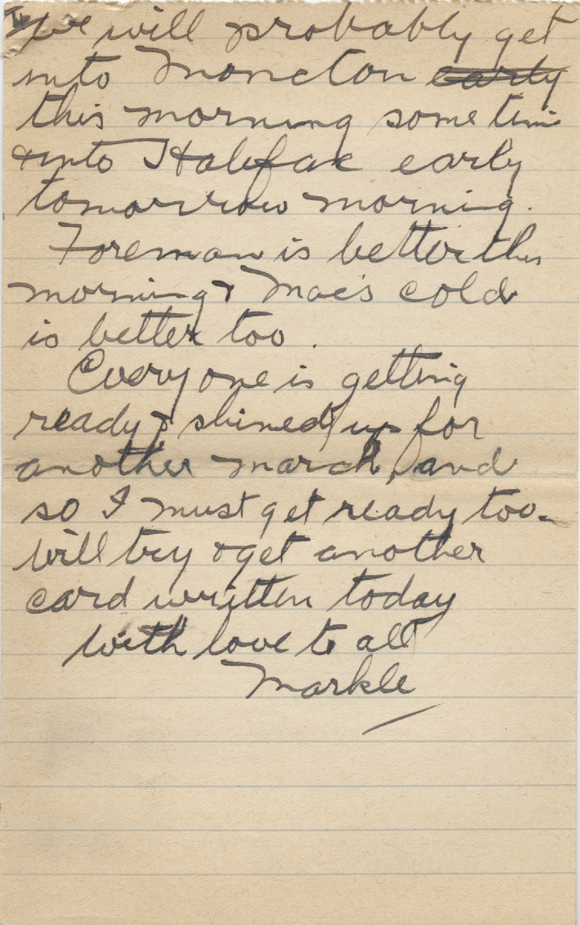 We will probably get
into Moncton early
this morning sometime
& into Halifax early
tomorrow morning.
Foreman is better this
morning & Mac's cold
is better too.
Everyone is getting
ready & shined up for
another march, and
so I must get ready too.
Will try & get another
card written today
with love to all
Markle